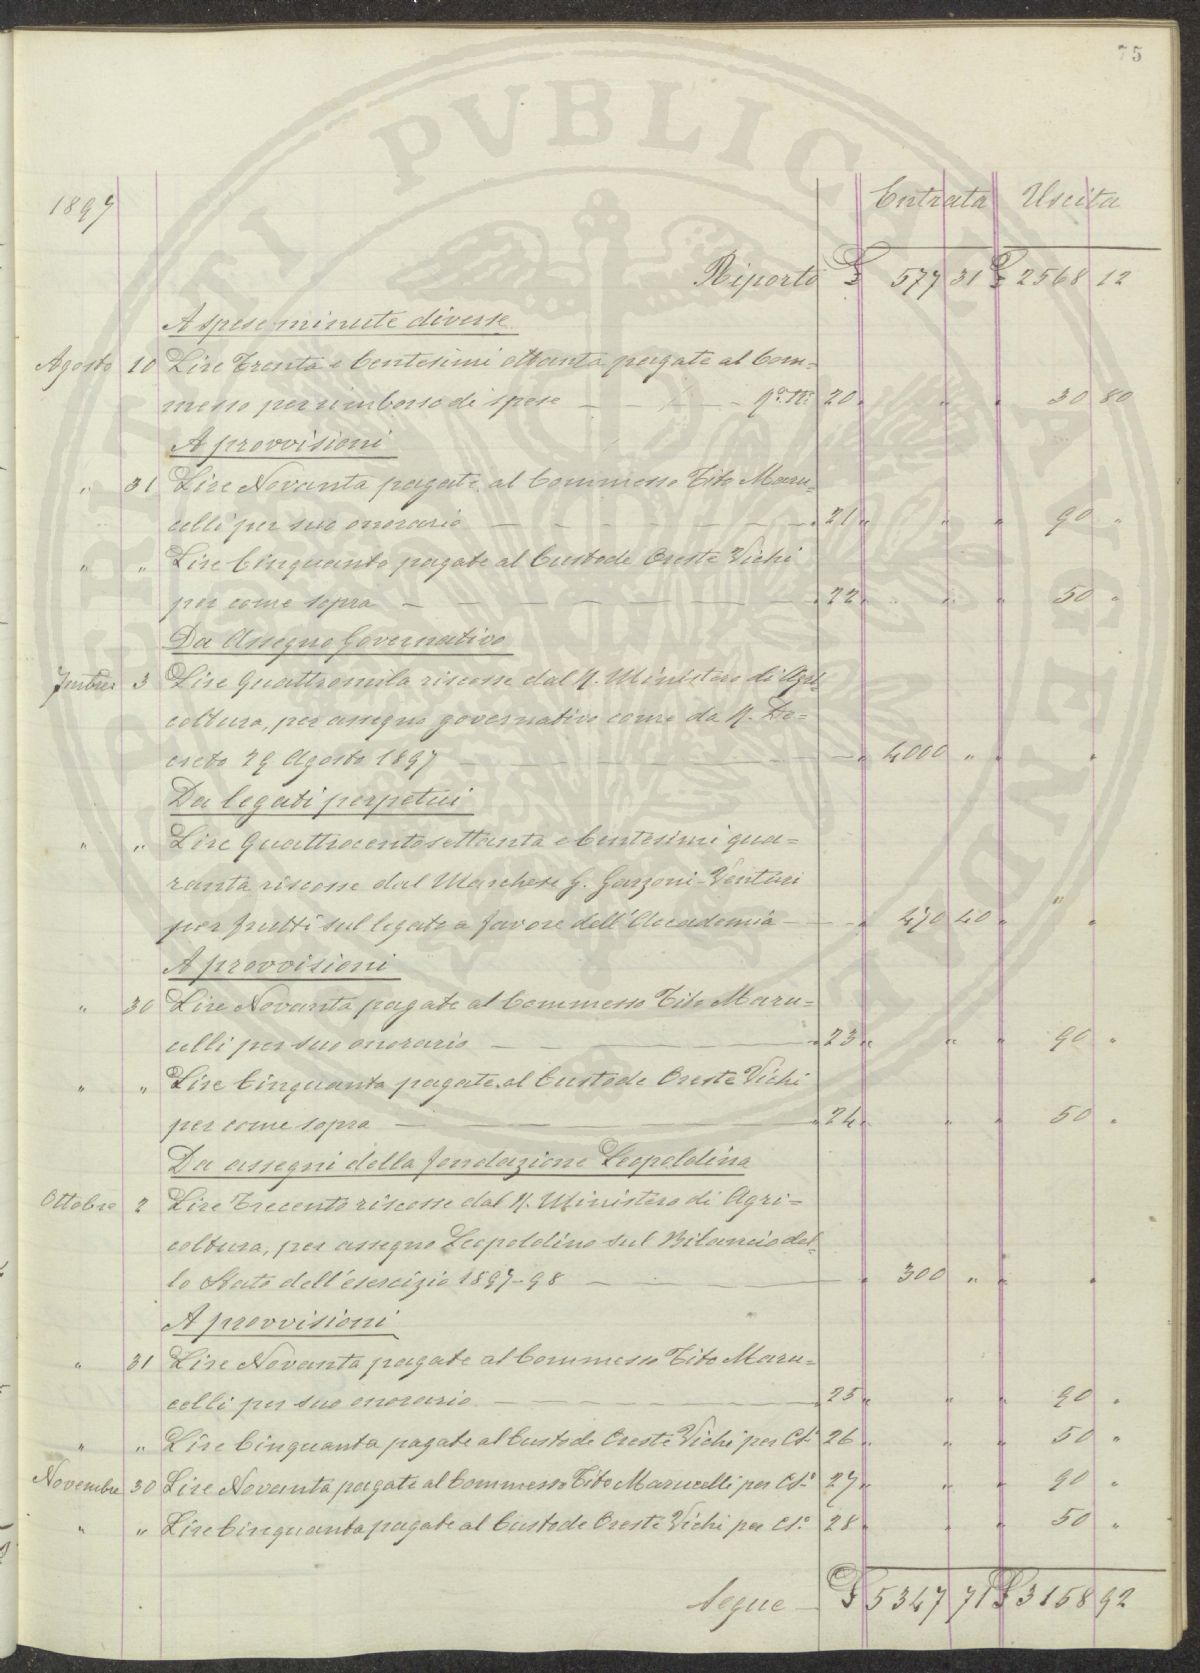 75
1897 Entrata Uscita
Riporto £ 577 31 £ 2568 12
A spese minute diverse
Agosto 10 Lire Trenta e Centesimi ottanta pagate al Com=
messo per rimborso di spese — — — 20 " " " 30 80
A provvisioni
" 31 Lire Novanta pagate al Commesso Tito Maru=
celli per suo onorario — — — 21 " " " 90 "
" " Lire Cinquanta pagate al Custode Oreste Vichi
per come sopra — — — 22 " " " 50 "
Da Assegno Governativo
3 Lire Quattromila riscosse dal R. Ministero di Agri=
coltura, per assegno governativo come da R. De=
creto 29 Agosto 1897 — — — " 4000 " " "
Da legati perpetui
" " Lire Quattrocentosettanta e Centesimi qua=
ranta riscosse dal Marchese G. Garzoni-Venturi "
per frutti sul legato a favore dell'Accademia — — " 470 40 " "
A provvisioni
" 30 Lire Novanta pagate al Commesso Tito Maru=
celli per suo onorario — — — 23 " " " 90 "
" " Lire Cinquanta pagate al Custode Oreste Vichi
per come sopra — — — 24 " " " 50 "
Da assegni della fondazione Leopoldina
Ottobre 2 Lire Trecento riscosse dal R. Ministero di Agri=
coltura, per assegno Leopoldino sul Bilancio del=
lo Stato dell'esercizio 1897-98 — — " 300 " " "
A provvisioni
" 31 Lire Novanta pagate al Commesso Tito Maru=
celli per suo onorario — — — 25 " " " 90 "
" " Lire Cinquanta pagate al Custode Oreste Vichi per Cs. 26 " " " 50 "
Novembre 30 Lire Novanta pagate al Commesso Tito Marucelli per Cs. 27 " " " 90 "
" " Lire Cinquanta pagate al Custode Oreste Vichi per Cs. 28 " " " 50 "
Segue — £ 5347 71 £ 3158 92